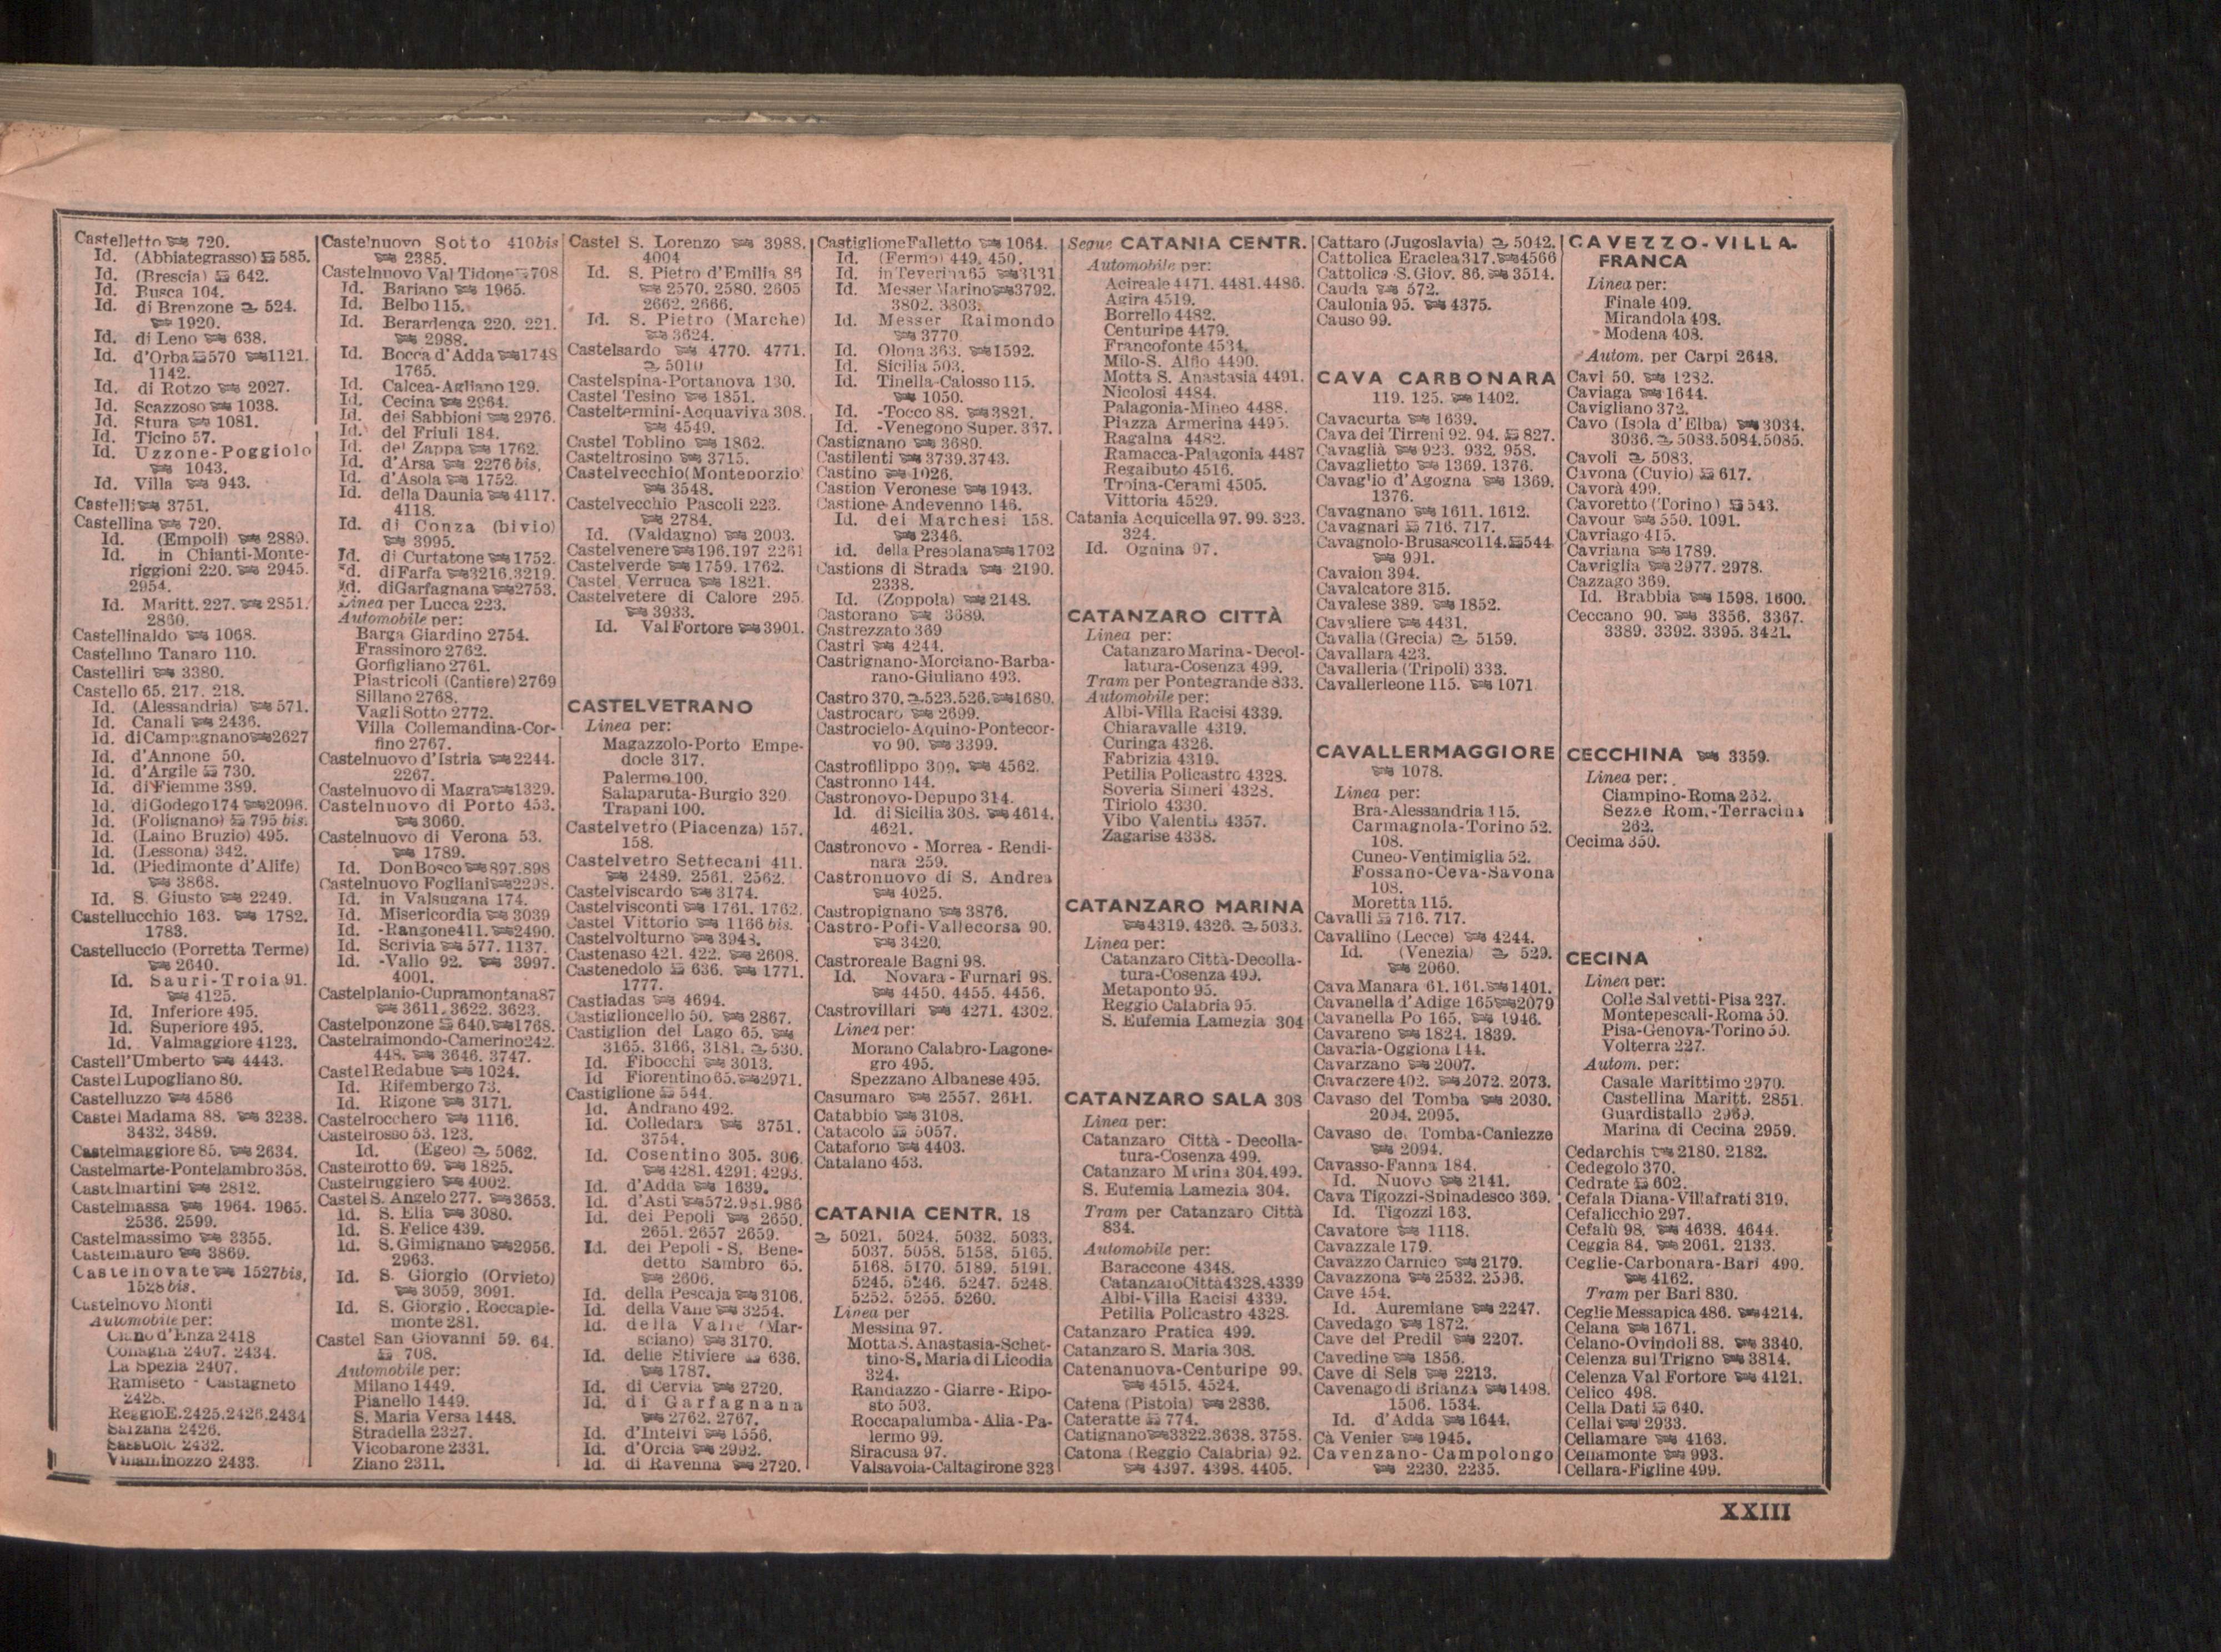 Castelletto 720.
Id. (Abbiategrasso) 585.
Id. (Brescia) 642.
Id. Busca 104.
Id. di Brenzone 524.
1920.
Id. di Leno 638.
Id. d'Orba 570 1121.
1142.
Id. di Rotzo 2027.
Id. Scazzoso 1038.
Id. Stura 1081.
Id. Ticino 57.
Id. Uzzone-Poggiolo
1043.
Id. Villa 943.
Castelli 3751.
Castellina 720.
Id. (Empoli) 2889.
Id. in Chianti-Monte-
riggioni 220. 2945.
2954.
Id. Maritt. 227. 2851.
2860.
Castellinaldo 1068.
Castellino Tanaro 110.
Castelliri 3380.
Castello 65. 217. 218.
Id. (Alessandria) 571.
Id. Canali 2436.
Id. di Campagnano 2627
Id. d'Annone 50.
Id. d'Argile 730.
Id. di Fiemme 389.
Id. di Godego 174 2096.
Id. (Folignano) 795 bis.
Id. (Laino Bruzio) 495.
Id. (Lessona) 342.
Id. (Piedimonte d'Alife)
3868.
Id. S. Giusto 2249.
Castellucchio 163. 1782.
1783.
Castelluccio (Porretta Terme)
2640.
Id. Sauri-Troia 91.
4125.
Id. Inferiore 495.
Id. Superiore 495.
Id. Valmaggiore 4123.
Castell'Umberto 4443.
Castel Lupogliano 80.
Castelluzzo 4586
Castel Madama 88. 3238.
3432. 3489.
Castelmaggiore 85. 2634.
Castelmarte-Pontelambro 358.
Castelmartini 2812.
Castelmassa 1964. 1965.
2536. 2599.
Castelmassimo 3355.
Castelmauro 3869.
Castelnovate 1527bis,
1528 bis.
Castelnovo Monti
Automobile per:
Ciano d'Enza 2418
Collagna 2407. 2434.
La Spezia 2407.
Ramiseto - Castagneto
2428.
Reggio E. 2425. 2426. 2434
Sarzana 2426.
Sassuolo 2432.
Villaminozzo 2433.
Castelnuovo Sotto 410bis
2385.
Castelnuovo Val Tidone 708
Id. Bariano 1965.
Id. Belbo 115.
Id. Berardenga 220. 221.
2988.
Id. Bocca d'Adda 1748
1765.
Id. Calcea-Agliano 129.
Id. Cecina 2964.
Id. dei Sabbioni 2976.
Id. del Friuli 184.
Id. del Zappa 1762.
Id. d'Arsa 2276 bis.
Id. d'Asola 1752.
Id. della Daunia 4117.
4118.
Id. di Conza (bivio)
3995.
Id. di Curtatone 1752.
Id. di Farfa 3216. 3219.
Id. di Garfagnana 2753.
Linea per Lucca 223.
Automobile per:
Barga Giardino 2754.
Frassinoro 2762.
Gorfigliano 2761.
Piastricoli (Cantiere) 2769
Sillano 2768.
Vagli Sotto 2772.
Villa Collemandina-Cor-
fino 2767.
Castelnuovo d'Istria 2244.
2267.
Castelnuovo di Magra 1329.
Castelnuovo di Porto 453.
3060.
Castelnuovo di Verona 53.
1789.
Id. Don Bosco 897.898
Castelnuovo Fogliani 2298.
Id. in Valsugana 174.
Id. Misericordia 3039
Id. -Rangone 411. 2490.
Id. Scrivia 577. 1137.
Id. -Vallo 92. 3997.
4001.
Castelplanio-Cupramontana 87
3611. 3622. 3623.
Castelponzone 640. 1768.
Castelraimondo-Camerino 242.
448. 3646. 3747.
Castel Redabue 1024.
Id. Rifembergo 73.
Id. Rigone 3171.
Castelrocchero 1116.
Castelrosso 53. 123.
Id. (Egeo) 5062.
Castelrotto 69. 1825.
Castelruggiero 4002.
Castel S. Angelo 277. 3653.
Id. S. Elia 3080.
Id. S. Felice 439.
Id. S. Gimignano 2956.
2963.
Id. S. Giorgio (Orvieto)
3059. 3091.
Id. S. Giorgio. Roccapie-
monte 281.
Castel San Giovanni 59. 64.
708.
Automobile per:
Milano 1449.
Pianello 1449.
S. Maria Versa 1448.
Stradella 2327.
Vicobarone 2331.
Ziano 2311.
Castel S. Lorenzo 3988.
4004
Id. S. Pietro d'Emilia 86
2570. 2580. 2605
2662. 2666.
Id. S. Pietro (Marche)
3624.
Castelsardo 4770. 4771.
5010
Castelspina-Portanova 130.
Castel Tesino 1851.
Casteltermini-Acquaviva 308.
4549.
Castel Toblino 1862.
Casteltrosino 3715.
Castelvecchio (Monteporzio)
3548.
Castelvecchio Pascoli 223.
2784.
Id. (Valdagno) 2003.
Castelvenere 196.197 2261
Castelverde 1759. 1762.
Castel Verruca 1821.
Castelvetere di Calore 295.
3933.
Id. Val Fortore 3901.
CASTELVETRANO
Linea per:
Magazzolo-Porto Empe-
docle 317.
Palermo 100.
Salaparuta-Burgio 320
Trapani 100.
Castelvetro (Piacenza) 157.
158.
Castelvetro Settecani 411.
2489. 2561. 2562.
Castelviscardo 3174.
Castelvisconti 1761. 1762.
Castel Vittorio 1166 bis.
Castelvolturno 3943.
Castenaso 421. 422. 2608.
Castenedolo 636. 1771.
1777.
Castiadas 4694.
Castiglioncello 50. 2867.
Castiglion del Lago 65.
3165. 3166. 3181. 530.
Id. Fibocchi 3013.
Id Fiorentino 65. 2971.
Castiglione 544.
Id. Andrano 492.
Id. Colledara 3751.
3754.
Id. Cosentino 305. 306.
4281. 4291. 4293.
Id. d'Adda 1639.
Id. d'Asti 572.981.986
Id. dei Pepoli 2650.
2651. 2657 2659.
Id. dei Pepoli - S. Bene-
detto Sambro 65.
2606.
Id. della Pescaja 3106.
Id. della Valle 3254.
Id. della Valle (Mar-
sciano) 3170.
Id. delle Stiviere 636.
1787.
Id. di Cervia 2720.
Id. di Garfagnana
2762. 2767.
Id. d'Intelvi 1556.
Id. d'Orcia 2992.
Id. di Ravenna 2720.
Castiglione Falletto 1064.
Id. (Fermo) 449. 450.
Id. in Teverina 65 3131
Id. Messer Marino 3792.
3802. 3803.
Id. Messer Raimondo
3770.
Id. Olona 363. 1592.
Id. Sicilia 503.
Id. Tinella-Calosso 115.
1050.
Id. -Tocco 88. 3821.
Id. -Venegono Super. 337.
Castignano 3680.
Castilenti 3739.3743.
Castino 1026.
Castion Veronese 1943.
Castione Andevenno 146.
Id. dei Marchesi 158.
2346.
id. della Presolana 1702
Castions di Strada 2190.
2338.
Id. (Zoppola) 2148.
Castorano 3689.
Castrezzato 369
Castri 4244.
Castrignano-Morciano-Barba-
rano-Giuliano 493.
Castro 370. 523.526. 1680.
Castrocaro 2699.
Castrocielo-Aquino-Pontecor-
vo 90. 3399.
Castrofilippo 309. 4562.
Castronno 144.
Castronovo-Depupo 314.
Id. di Sicilia 308. 4614.
4621.
Castronovo - Morrea - Rendi-
nara 259.
Castronuovo di S. Andrea
4025.
Castropignano 3876.
Castro-Pofi-Vallecorsa 90.
3420.
Castroreale Bagni 98.
Id. Novara - Furnari 98.
4450. 4455. 4456.
Castrovillari 4271. 4302.
Linea per:
Morano Calabro-Lagone-
gro 495.
Spezzano Albanese 495.
Casumaro 2557. 2611.
Catabbio 3108.
Catacolo 5057.
Cataforio 4403.
Catalano 453.
CATANIA CENTR. 18
5021. 5024. 5032. 5033.
5037. 5058. 5158. 5165.
5168. 5170. 5189. 5191.
5245. 5246. 5247. 5248.
5252. 5255. 5260.
Linea per
Messina 97.
Motta S. Anastasia-Schet-
tino-S. Maria di Licodia
324.
Randazzo - Giarre - Ripo-
sto 503.
Roccapalumba - Alia - Pa-
lermo 99.
Siracusa 97.
Valsavoia-Caltagirone 323
Segue CATANIA CENTR.
Automobile per:
Acireale 4471. 4481. 4486.
Agira 4519.
Borrello 4482.
Centuripe 4479.
Francofonte 4534.
Milo-S. Alfio 4490.
Motta S. Anastasia 4491.
Nicolosi 4484.
Palagonia-Mineo 4488.
Piazza Armerina 4495.
Ragalna 4482.
Ramacca-Palagonia 4487
Regalbuto 4516.
Troina-Cerami 4505.
Vittoria 4529.
Catania Acquicella 97. 99. 323.
324.
Id. Ognina 97.
CATANZARO CITTÀ
Linea per:
Catanzaro Marina-Decol-
latura-Cosenza 499.
Tram per Pontegrande 833.
Automobile per:
Albi-Villa Racisi 4339.
Chiaravalle 4319.
Curinga 4326.
Fabrizia 4319.
Petilia Policastro 4328.
Soveria Simeri 4328.
Tiriolo 4330.
Vibo Valentia 4357.
Zagarise 4338.
CATANZARO MARINA
4319. 4326. 5033.
Linea per:
Catanzaro Città-Decolla-
tura-Cosenza 499.
Metaponto 95.
Reggio Calabria 95.
S. Eufemia Lamezia 304
CATANZARO SALA 308
Linea per:
Catanzaro Città - Decolla-
tura-Cosenza 499.
Catanzaro Marina 304.499.
S. Eufemia Lamezia 304.
Tram per Catanzaro Città
834.
Automobile per:
Baraccone 4348.
Catanzaro Città 4328.4339
Albi-Villa Racisi 4339.
Petilia Policastro 4328.
Catanzaro Pratica 499.
Catanzaro S. Maria 308.
Catenanuova-Centuripe 99.
4515. 4524.
Catena (Pistoia) 2836.
Cateratte 774.
Catignano 3322.3638. 3758.
Catona (Reggio Calabria) 92.
4397. 4398. 4405.
Cattaro (Jugoslavia) 5042.
Cattolica Eraclea 317. 4566
Cattolica S. Giov. 86. 3514.
Cauda 572.
Caulonia 95. 4375.
Causo 99.
CAVA CARBONARA
119. 125. 1402.
Cavacurta 1639.
Cava dei Tirreni 92. 94. 827.
Cavaglià 923. 932. 958.
Cavaglietto 1369. 1376.
Cavaglio d'Agogna 1369.
1376.
Cavagnano 1611. 1612.
Cavagnari 716. 717.
Cavagnolo-Brusasco 114. 544
991.
Cavaion 394.
Cavalcatore 315.
Cavalese 389. 1852.
Cavaliere 4431.
Cavalla (Grecia) 5159.
Cavallara 423.
Cavalleria (Tripoli) 333.
Cavallerleone 115. 1071
CAVALLERMAGGIORE
1078.
Linea per:
Bra-Alessandria 115.
Carmagnola-Torino 52.
108.
Cuneo-Ventimiglia 52.
Fossano-Ceva-Savona
108.
Moretta 115.
Cavalli 716. 717.
Cavallino (Lecce) 4244.
Id. (Venezia) 529.
2060.
Cava Manara 61. 161. 1401.
Cavanella d'Adige 165 2079
Cavanella Po 165. 1946.
Cavareno 1824. 1839.
Cavaria-Oggiona 144.
Cavarzano 2007.
Cavarzere 402. 2072. 2073.
Cavaso del Tomba 2030.
2094. 2095.
Cavaso del Tomba-Caniezze
2094.
Cavasso-Fanna 184.
Id. Nuovo 2141.
Cava Tigozzi-Spinadesco 369.
Id. Tigozzi 163.
Cavatore 1118.
Cavazzale 179.
Cavazzo Carnico 2179.
Cavazzona 2532. 2596.
Cave 454.
Id. Auremiane 2247.
Cavedago 1872.
Cave del Predil 2207.
Cavedine 1856.
Cave di Sels 2213.
Cavenago di Brianza 1498.
1506. 1534.
Id. d'Adda 1644.
Cà Venier 1945.
Cavenzano-Campolongo
2230. 2235.
CAVEZZO-VILLA-
FRANCA
Linea per:
Finale 409.
Mirandola 408.
Modena 408.
Autom. per Carpi 2648.
Cavi 50. 1282.
Caviaga 1644.
Cavigliano 372.
Cavo (Isola d'Elba) 3034.
3036. 5083.5084.5085.
Cavoli 5083.
Cavona (Cuvio) 617.
Cavorà 499.
Cavoretto (Torino) 543.
Cavour 550. 1091.
Cavriago 415.
Cavriana 1789.
Cavriglia 2977. 2978.
Cazzago 369.
Id. Brabbia 1598. 1600.
Ceccano 90. 3356. 3367.
3389. 3392. 3395. 3421.
CECCHINA 3359.
Linea per:
Ciampino-Roma 262.
Sezze Rom.-Terracina
262.
Cecima 350.
CECINA
Linea per:
Colle Salvetti-Pisa 227.
Montepescali-Roma 50.
Pisa-Genova-Torino 50.
Volterra 227.
Autom. per:
Casale Marittimo 2970.
Castellina Maritt. 2851.
Guardistallo 2969.
Marina di Cecina 2959.
Cedarchis 2180. 2182.
Cedegolo 370.
Cedrate 602.
Cefala Diana-Villafrati 319.
Cefalicchio 297.
Cefalù 98. 4638. 4644.
Ceggia 84. 2061. 2133.
Ceglie-Carbonara-Bari 490.
4162.
Tram per Bari 830.
Ceglie Messapica 486. 4214.
Celana 1671.
Celano-Ovindoli 88. 3340.
Celenza sul Trigno 3814.
Celenza Val Fortore 4121.
Celico 498.
Cella Dati 640.
Cellai 2933.
Cellamare 4163.
Cellamonte 993.
Cellara-Figline 499.
XXIII